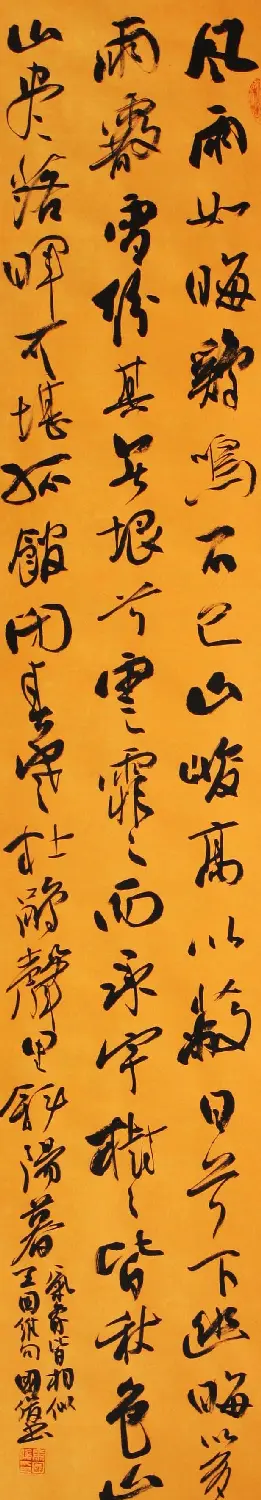 風雨如晦鷄鳴不已山峻高以蔽日兮下幽晦以多
雨霰雪紛其無垠兮雲霏々而承宇樹々皆秋色山
山尽落暉可堪孤館閉春寒杜鵑聲里斜陽暮
氣象皆相似
王国維句